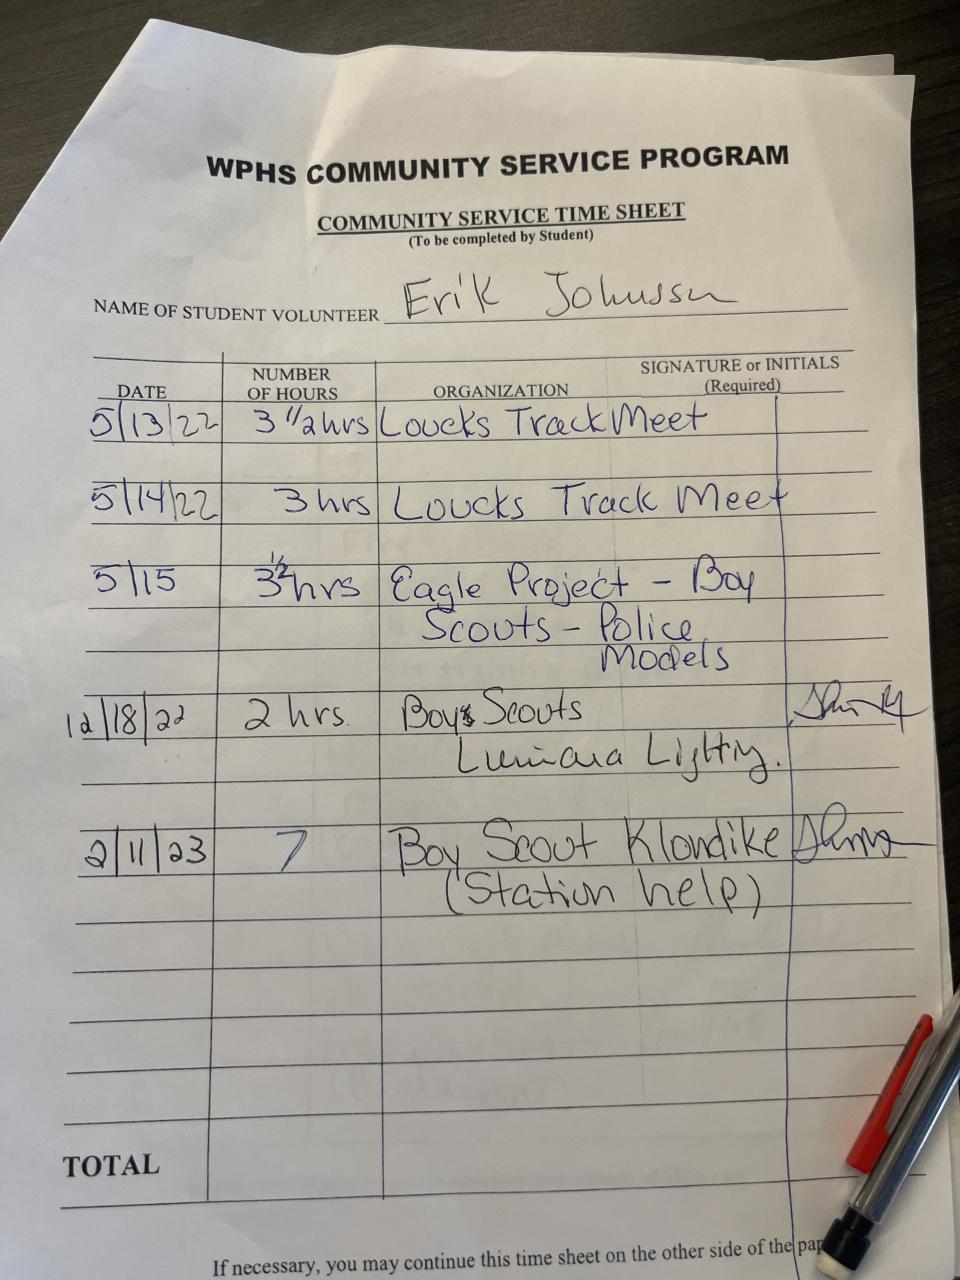 WPHS COMMUNITY SERVICE PROGRAM
COMMUNITY SERVICE TIME SHEET
(To be completed by Student)
NAME OF STUDENT VOLUNTEER Erik Johnson
DATE NUMBER OF HOURS ORGANIZATION SIGNATURE or INITIALS (Required)
5/13/22 3 1/2 hrs Loucks Track Meet
5/14/22 3 hrs Loucks Track Meet
5/15 3 1/2 hrs Eagle Project - Boy
Scouts - Police
Models
12/18/22 2 hrs. Boy Scouts
Luminara Lighting.
2/11/23 7 Boy Scout Klondike
(Station help)
TOTAL
If necessary, you may continue this time sheet on the other side of the